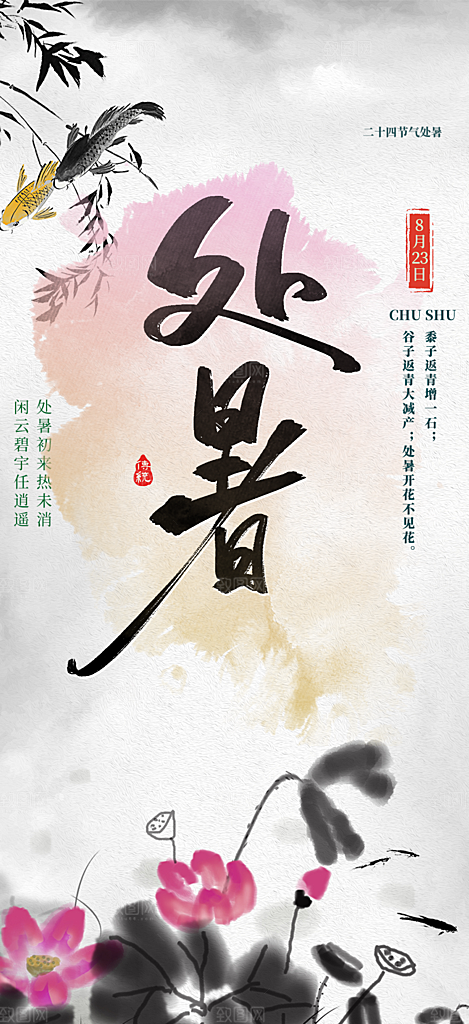 二十四节气处暑
8月23日
CHU SHU
黍子返青增一石；
谷子返青大减产；处暑开花不见花。
处暑
传统
处暑初来热未消
闲云碧宇任逍遥